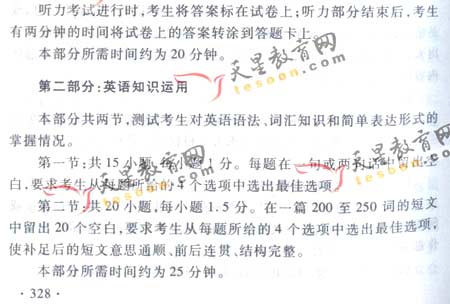 听力考试进行时,考生将答案标在试卷上;听力部分结束后,考生
有两分钟的时间将试卷上的答案转涂到答题卡上。
本部分所需时间约为 20 分钟。
第二部分:英语知识运用
本部分共两节,测试考生对英语语法、词汇知识和简单表达形式的
掌握情况。
第一节:共 15 小题,每小题 1 分。每题在一句或两句话中留出空
白,要求考生从每题所给的 4 个选项中选出最佳选项。
第二节:共 20 小题,每小题 1.5 分。在一篇 200 至 250 词的短文
中留出 20 个空白,要求考生从每题所给的 4 个选项中选出最佳选项,
使补足后的短文意思通顺、前后连贯、结构完整。
本部分所需时间约为 25 分钟。
· 328 ·
天星教育网
tesoon.com
天星教育网
tesoon.com